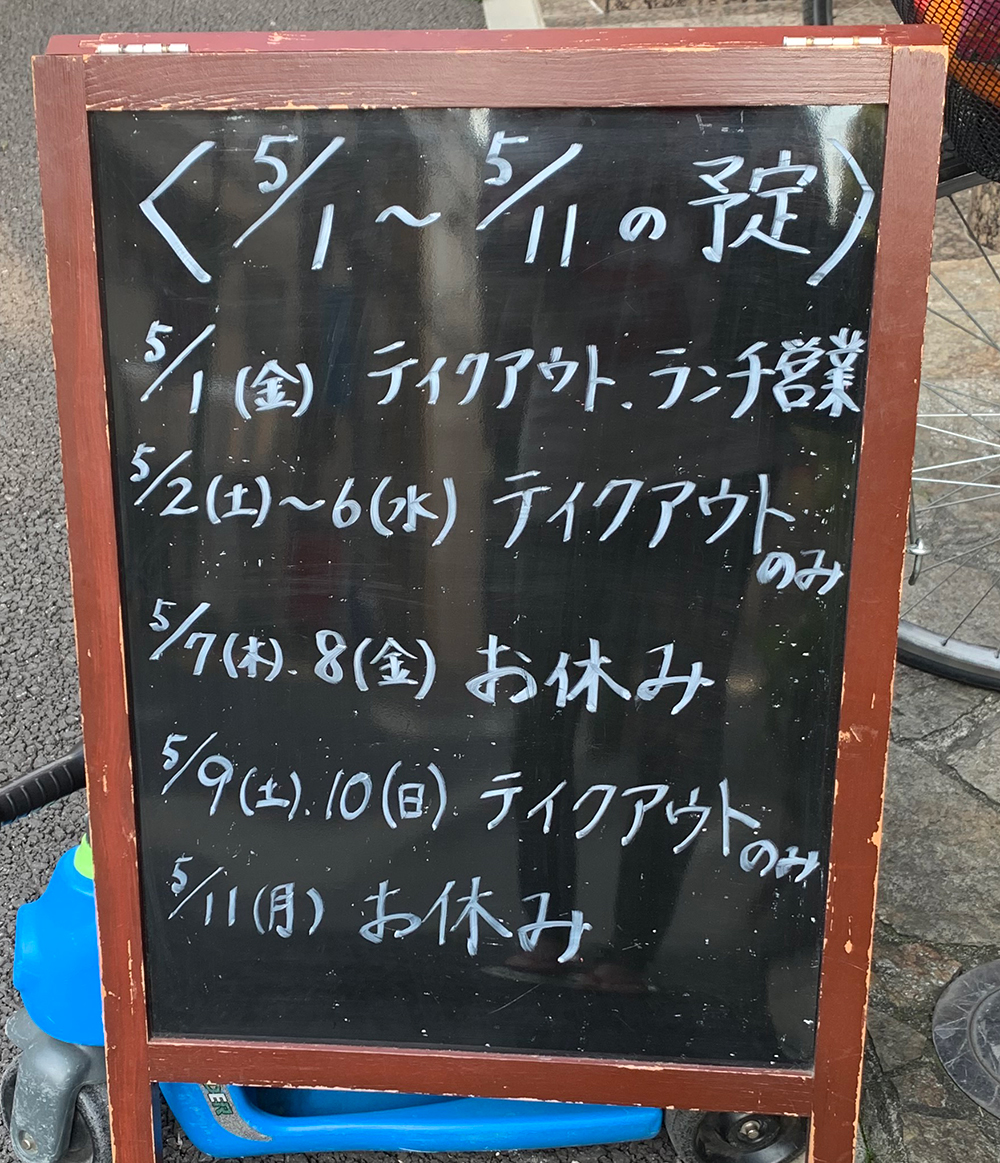 〈5/1～5/11の予定〉
5/1(金) テイクアウト、ランチ営業
5/2(土)～6(水) テイクアウト
のみ
5/7(木)、8(金) お休み
5/9(土)、10(日) テイクアウト
のみ
5/11(月) お休み
DER